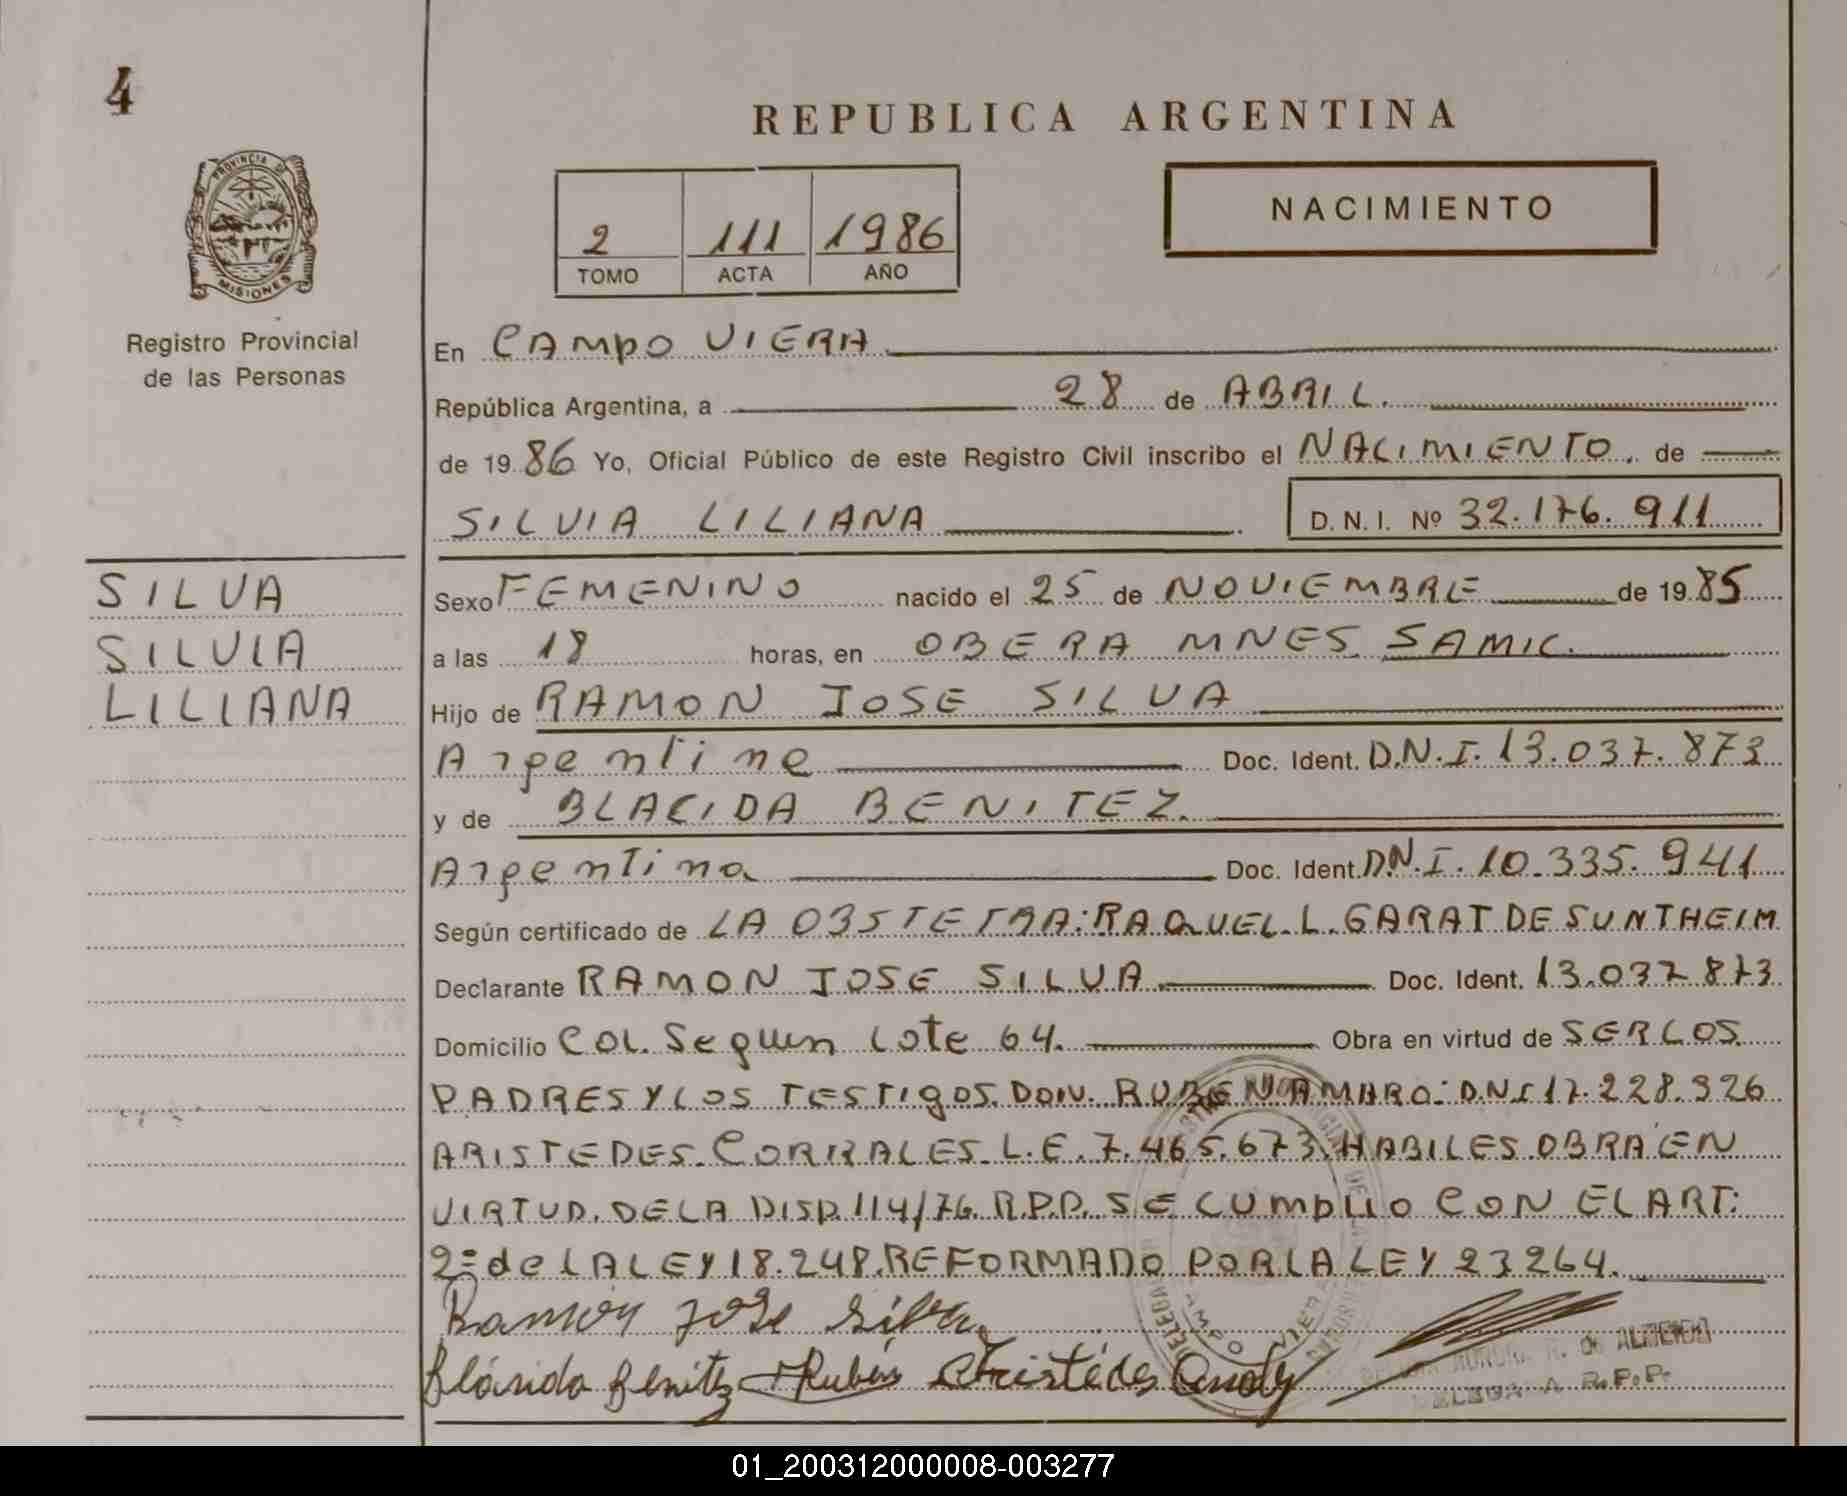 4
REPUBLICA ARGENTINA
PROVINCIA DE
MISIONES
Registro Provincial
de las Personas
2 111 1986
TOMO ACTA AÑO
NACIMIENTO
En CAMPO VIERA
República Argentina, a 28 de ABRIL.
de 1986 Yo, Oficial Público de este Registro Civil inscribo el NACIMIENTO. de
SILVIA LILIANA D. N. I. Nº 32.176.911
SILVA
SILVIA
LILIANA
Sexo FEMENINO nacido el 25 de NOVIEMBRE de 1985
a las 18 horas, en OBERA MNES SAMIC.
Hijo de RAMON JOSE SILVA
Argentino Doc. Ident. D.N.I. 13.037.873
y de BLACIDA BENITEZ.
Argentina Doc. Ident. D.N.I. 10.335.941
Según certificado de LA OBSTETRA: RAQUEL L. GARAT DE SUNTHEIM
Declarante RAMON JOSE SILVA Doc. Ident. 13.037.873
Domicilio COL. Seguin Lote 64. Obra en virtud de SER LOS
PADRES Y LOS TESTIGOS. DON. RUBEN AMARO: D.N.I 17.228.326
ARISTEDES. CORRALES. L.E. 7.465.673. HABILES. OBRA EN
VIRTUD. DE LA DISP. 114/76. R.P.P. SE CUMPLIO CON EL ART:
2º de LA LEY 18.248. REFORMADO POR LA LEY 23264.
Ramón José Silva
Blásida Benitez Rubén Aristédes
DELEGA
CAMPO VIERA
R. de ALMEIDA
DELEGADA R.P.P.
01_200312000008-003277